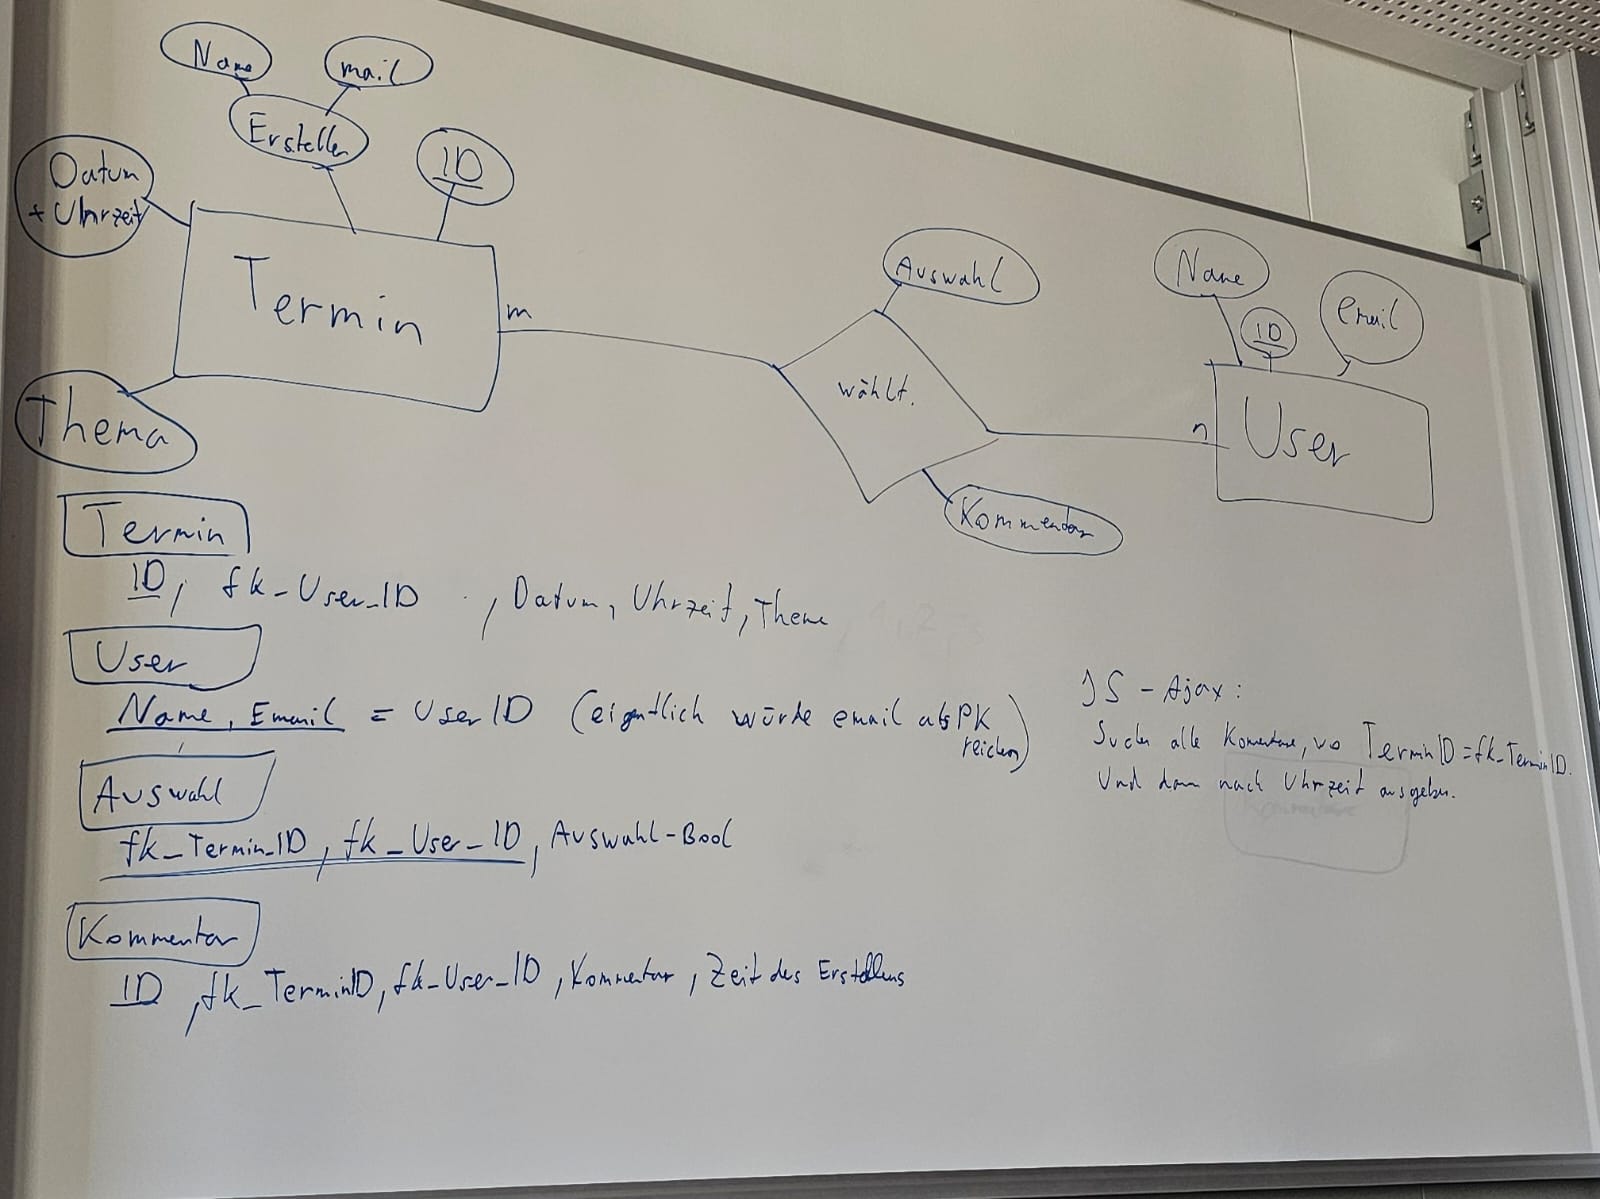 Name
mail
Ersteller
ID
Datum
+ Uhrzeit
Termin
m
Thema
Auswahl
wählt.
Kommentar
Name
ID
Email
n
User
Termin
ID, fk-User_ID , Datum, Uhrzeit, Thema
User
Name, Email = User ID (eigentlich würde email als PK
reichen)
Auswahl
fk_Termin_ID, fk_User_ID, Auswahl-Bool
Kommentar
ID, fk_TerminID, fk-User_ID, Kommentar, Zeit des Erstellens
JS - Ajax:
Suche alle Komentare, wo TerminID=fk_TerminID.
Und dann nach Uhrzeit ausgeben.